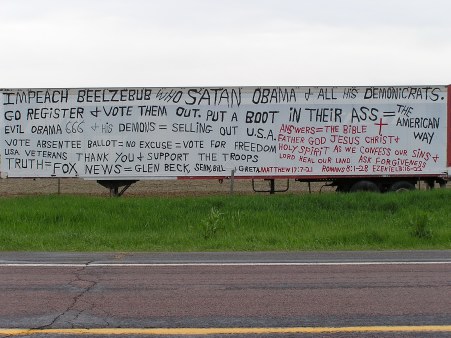 IMPEACH BEELZEBUB WHO SATAN OBAMA & ALL HIS DEMONICRATS.
GO REGISTER & VOTE THEM OUT. PUT A BOOT IN THEIR ASS = THE AMERICAN WAY
EVIL OBAMA 666 & HIS DEMONS = SELLING OUT U.S.A.
VOTE ABSENTEE BALLOT = NO EXCUSE = VOTE FOR FREEDOM
USA VETERANS THANK YOU & SUPPORT THE TROOPS
TRUTH = FOX NEWS = GLEN BECK, SEAN, BILL, GRETA
ANSWERS = THE BIBLE
FATHER GOD JESUS CHRIST &
HOLY SPIRIT AS WE CONFESS OUR SINS &
LORD HEAL OUR LAND. ASK FORGIVENESS
MATTHEW ROMANS EZEKIEL